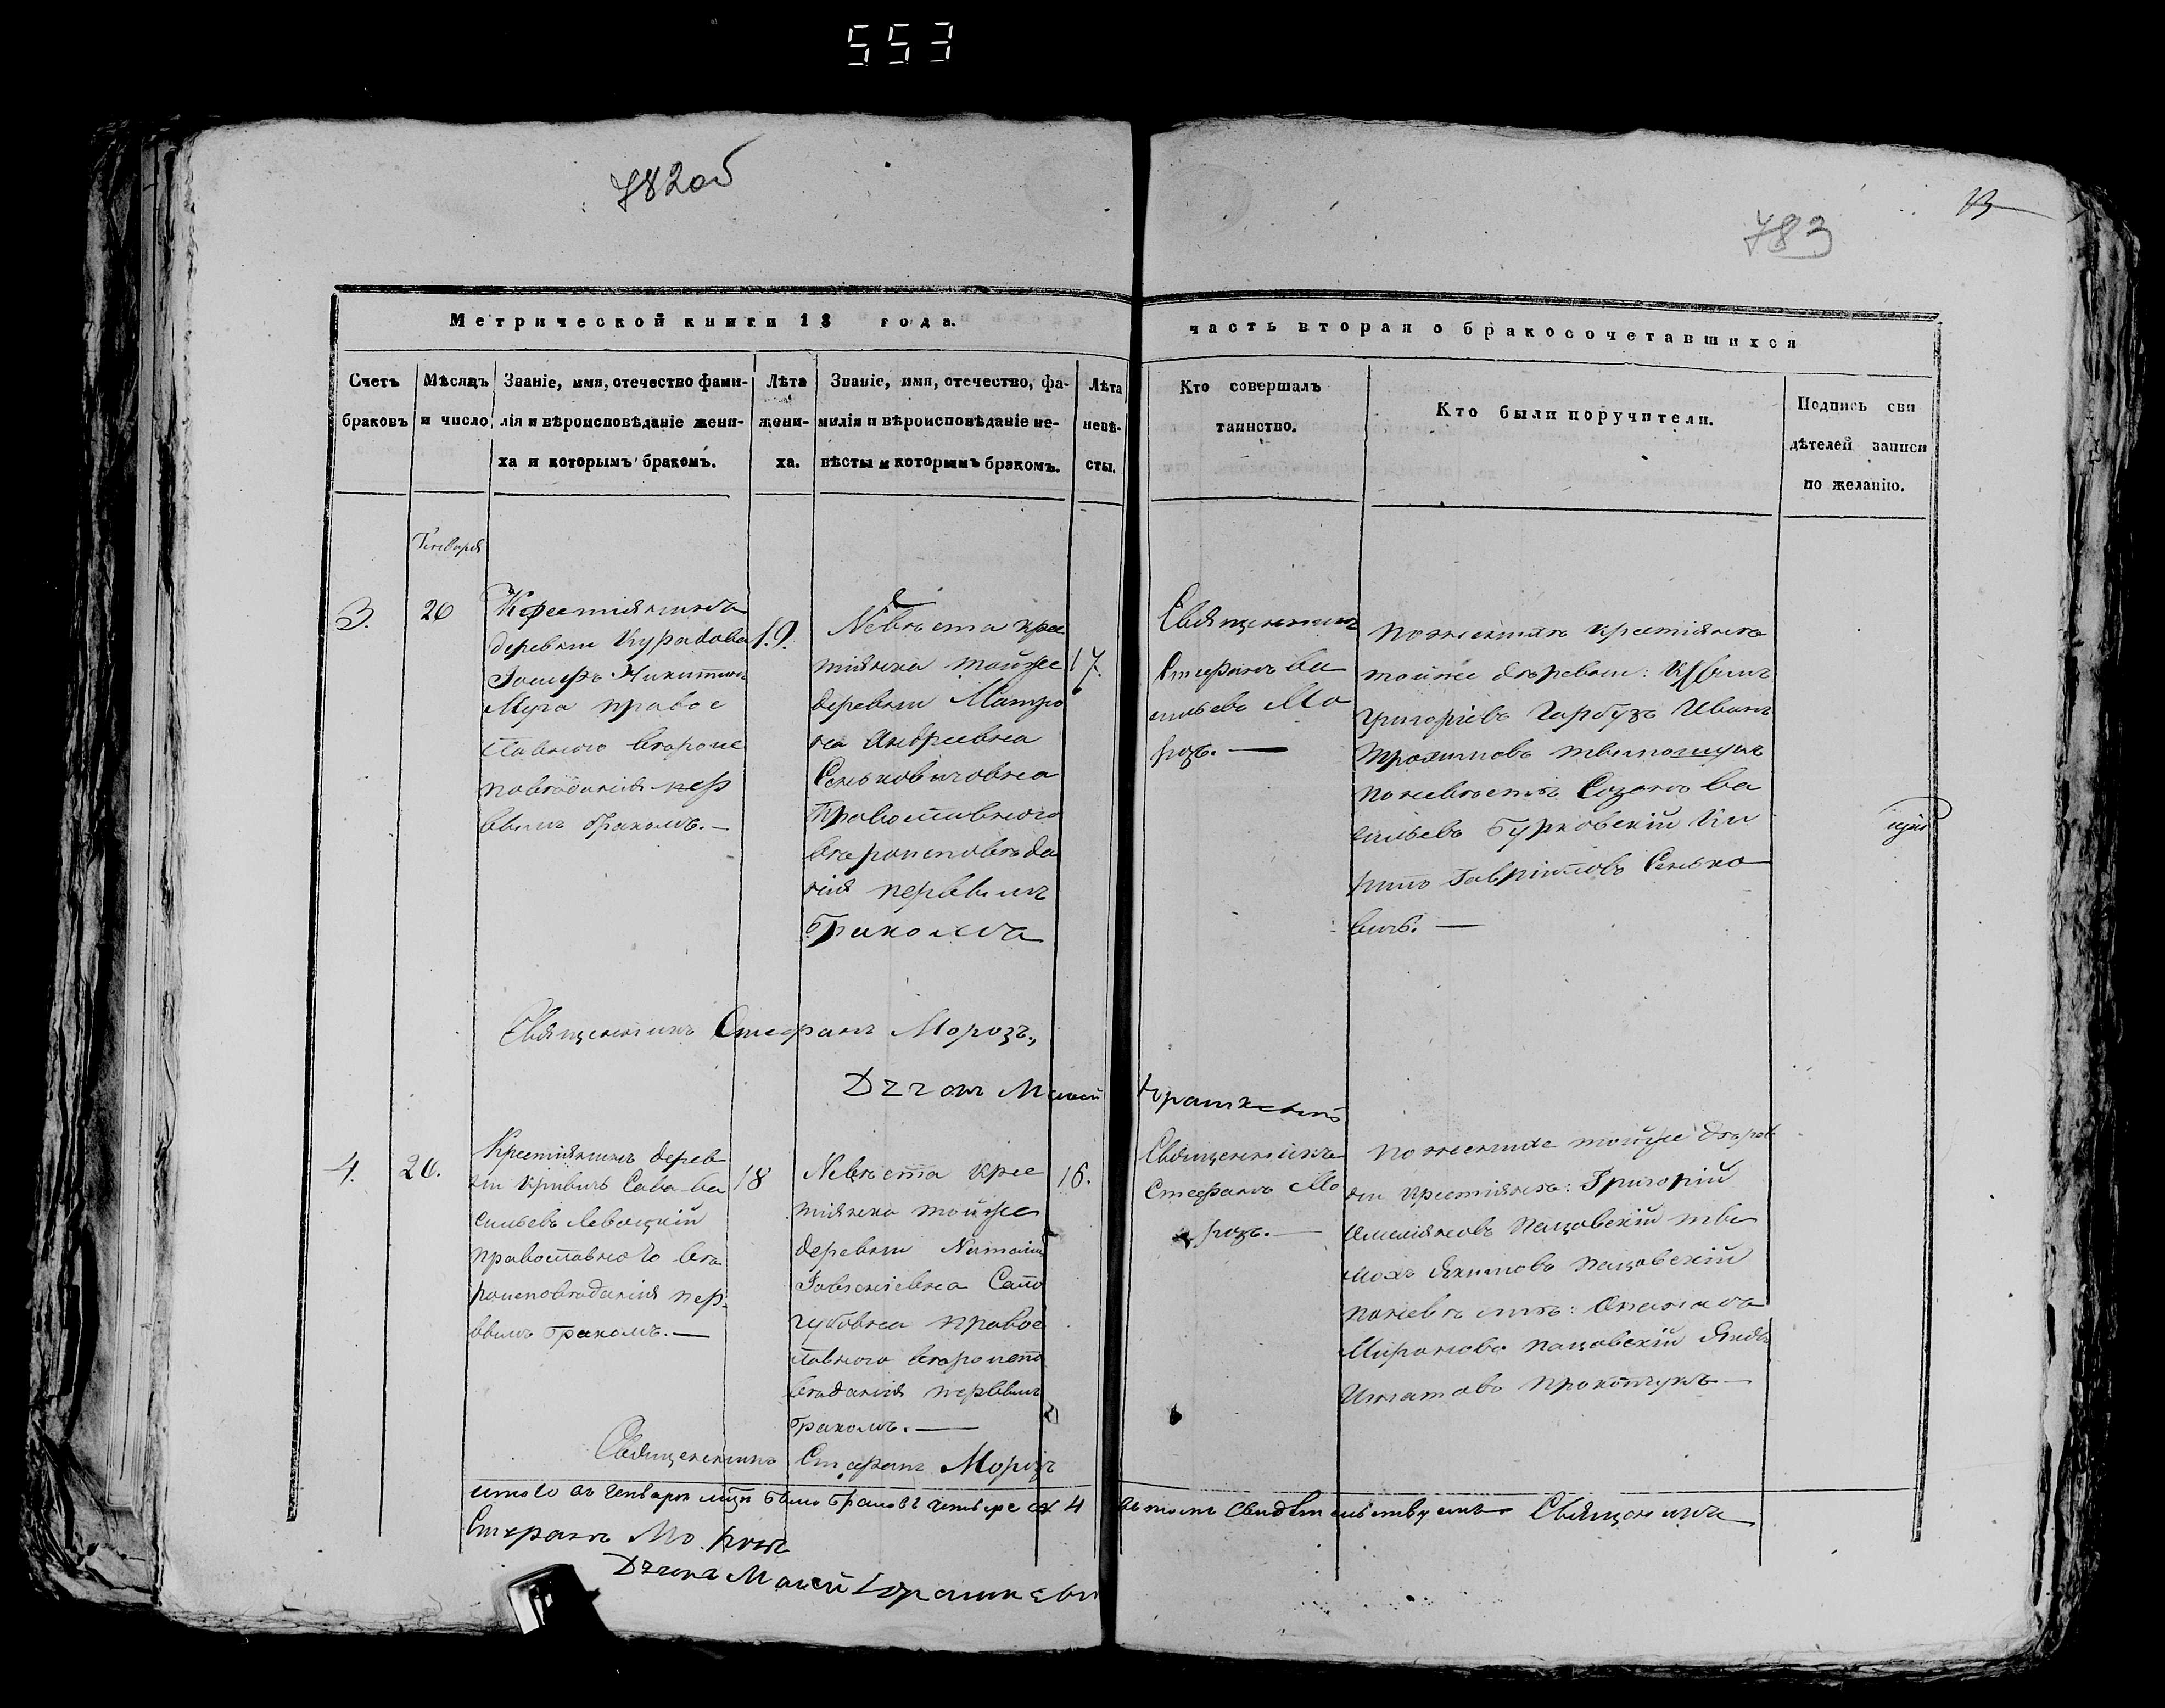 553
782об
783
13
Метрической книги 18 года.
часть вторая о бракосочетавшихся
Счетъ браковъ
Мѣсяцъ и число
Званіе, имя, отечество фами-
лія и вѣроисповѣданіе жени-
ха и которымъ бракомъ.
Лѣта
жени-
ха.
Званіе, имя, отечество, фа-
милія и вѣроисповѣданіе не-
вѣсты и которымъ бракомъ.
Лѣта
невѣ-
сты.
Кто совершалъ
таинство.
Кто были поручители.
Подпись сви
дѣтелей записи
по желанію.
Генваря
3.
20
Крестіянинъ
деревни Курадова
Іосифъ Никитинъ
Муха правос
лавного вѣроис
повѣданія пер
вымъ бракомъ. —
19.
Невѣста крес
тіянка тойже
деревни Матро
на Андреевна
Сеньковичовна
Православного
вѣроисповѣда
нія первымъ
бракомъ
17.
Священникъ
Стефанъ Ва
сильевъ Мо
розъ. —
по женихѣ крестіяне
тойже дѣревни:
Григоріевъ Гарбузъ Иванъ
по невѣстѣ Созонъ Ва
сильевъ Бурковскій Ки
рилъ Гавріиловъ Сенько
вичъ. —
Священникъ Стефанъ Морозъ.,
4.
20.
Крестіянинъ дерев
ни Кривичъ Сава Ва
сильевъ Левицкій
православного вѣ
роисповѣданія пер
вымъ бракомъ. —
18
Невѣста крес
тіянка тойже
деревни Наталія
православного вѣроиспо
вѣданія первымъ
бракомъ. —
16.
Священникъ
Стефанъ Мо
розъ. —
по женихе тойже дѣрев
ни крестіяне: Григорій
Емеліяновъ Пацовскій
Якимовъ Пацовскій
по невѣстѣ:
Мироновъ Пацовскій
Игнатовъ Прокопчукъ —
Священникъ Стефанъ Морозъ
итого въ генварѣ мцѣ было браковъ четыре 4 въ томъ свидѣтельствуемъ Священикъ
Стефанъ Морозъ